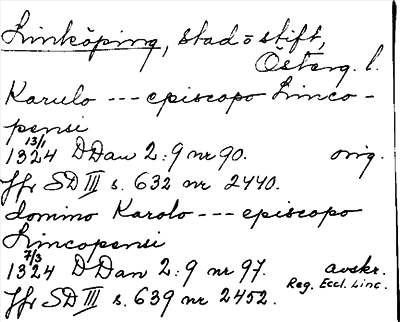 Linköping, stad o stift,
Österg. l.
Karulo --- episcopo Linco-
pensi
13/1
1324 DDan 2:9 nr 90. orig.
Jfr SD III s. 632 nr 2440.
domino Karolo --- episcopo
Lincopensi
7/3
1324 DDan 2:9 nr 97. avskr.
Reg. Eccl. Linc.
Jfr SD III s. 639 nr 2452.